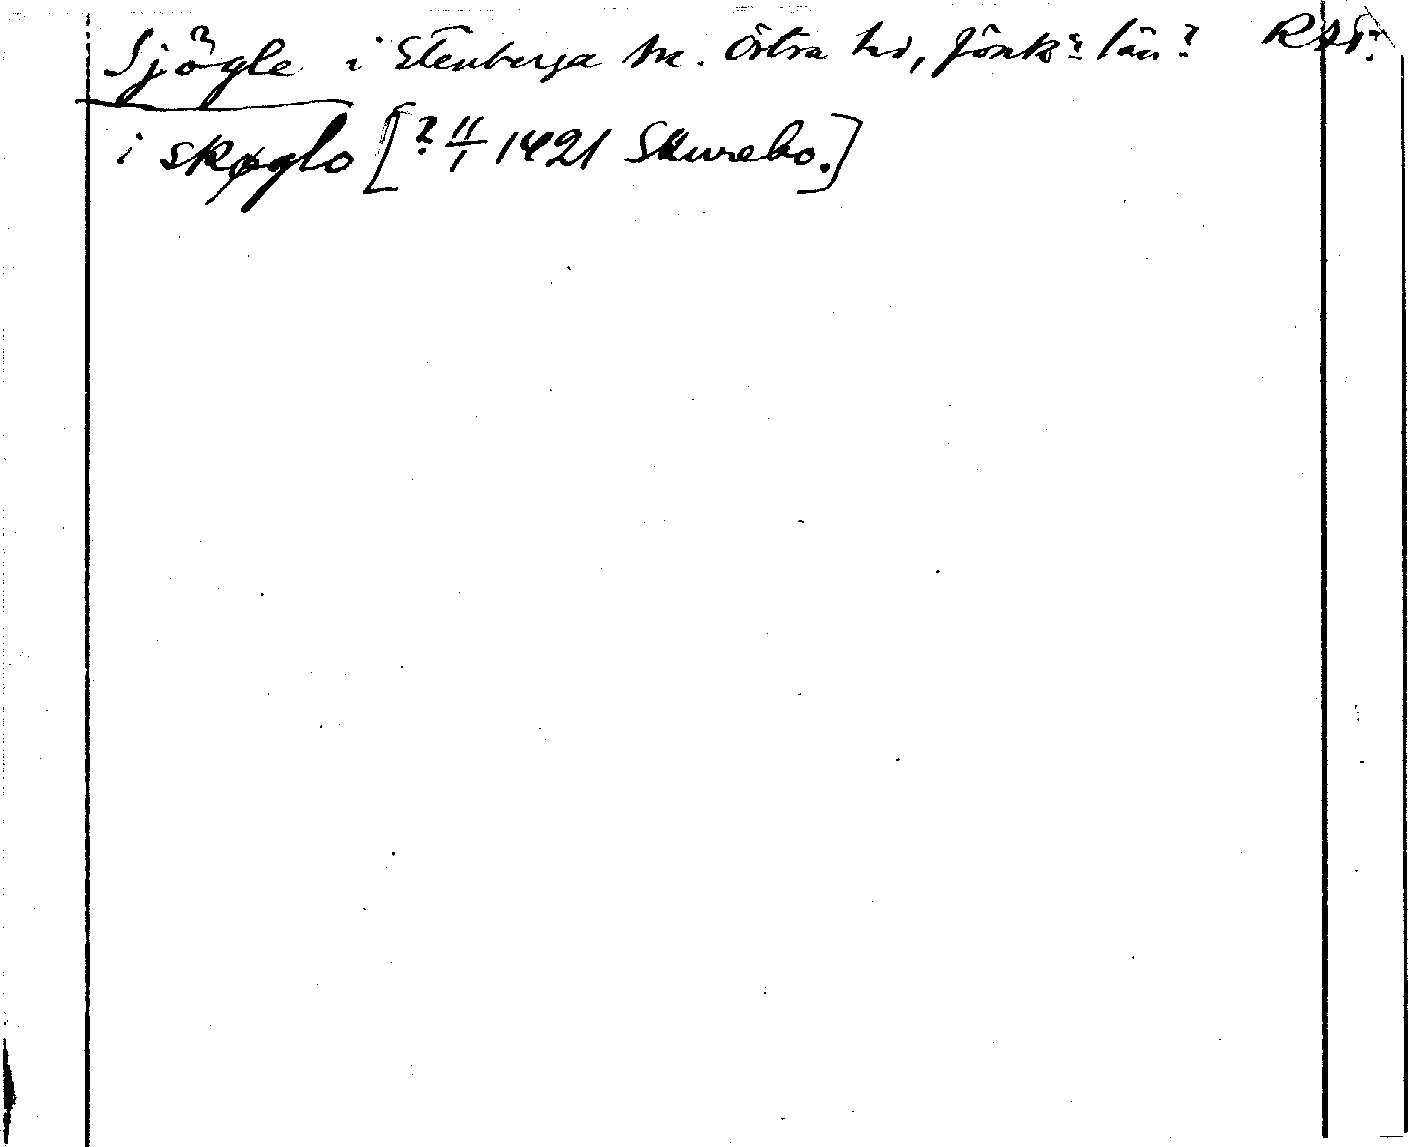 Sjögle i Stenberga sn. Östra hd, Jönk? län? RAp.
i skøglo [? 11/1 1421 Skurebo.]